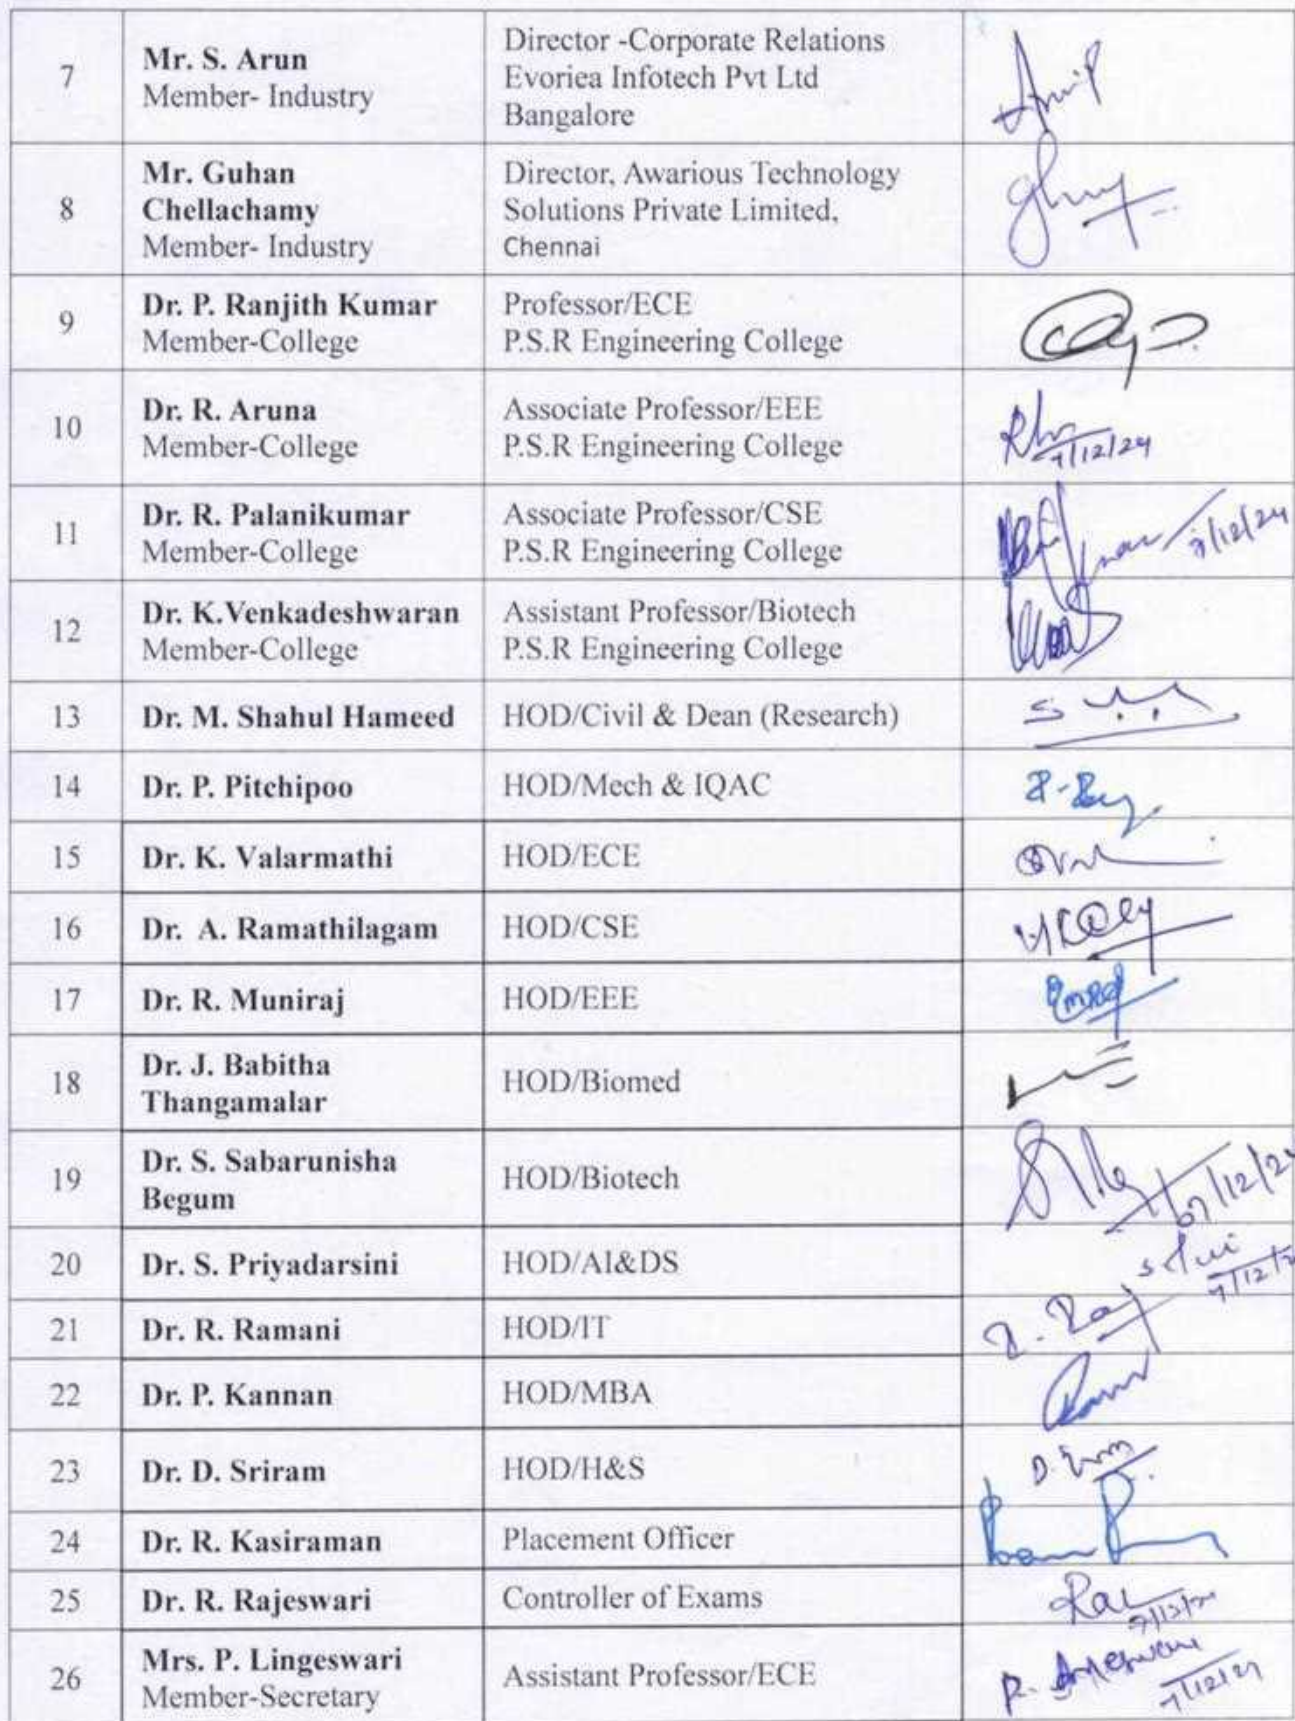 7
Mr. S. Arun
Member- Industry
Director -Corporate Relations
Evoriea Infotech Pvt Ltd
Bangalore
8
Mr. Guhan
Chellachamy
Member- Industry
Director, Awarious Technology
Solutions Private Limited,
Chennai
9
Dr. P. Ranjith Kumar
Member-College
Professor/ECE
P.S.R Engineering College
10
Dr. R. Aruna
Member-College
Associate Professor/EEE
P.S.R Engineering College
7/12/24
11
Dr. R. Palanikumar
Member-College
Associate Professor/CSE
P.S.R Engineering College
7/12/24
12
Dr. K.Venkadeshwaran
Member-College
Assistant Professor/Biotech
P.S.R Engineering College
13
Dr. M. Shahul Hameed
HOD/Civil & Dean (Research)
14
Dr. P. Pitchipoo
HOD/Mech & IQAC
15
Dr. K. Valarmathi
HOD/ECE
16
Dr. A. Ramathilagam
HOD/CSE
17
Dr. R. Muniraj
HOD/EEE
18
Dr. J. Babitha
Thangamalar
HOD/Biomed
19
Dr. S. Sabarunisha
Begum
HOD/Biotech
07/12/2
20
Dr. S. Priyadarsini
HOD/AI&DS
7/12/2
21
Dr. R. Ramani
HOD/IT
22
Dr. P. Kannan
HOD/MBA
23
Dr. D. Sriram
HOD/H&S
24
Dr. R. Kasiraman
Placement Officer
25
Dr. R. Rajeswari
Controller of Exams
26
Mrs. P. Lingeswari
Member-Secretary
Assistant Professor/ECE
7/12/24